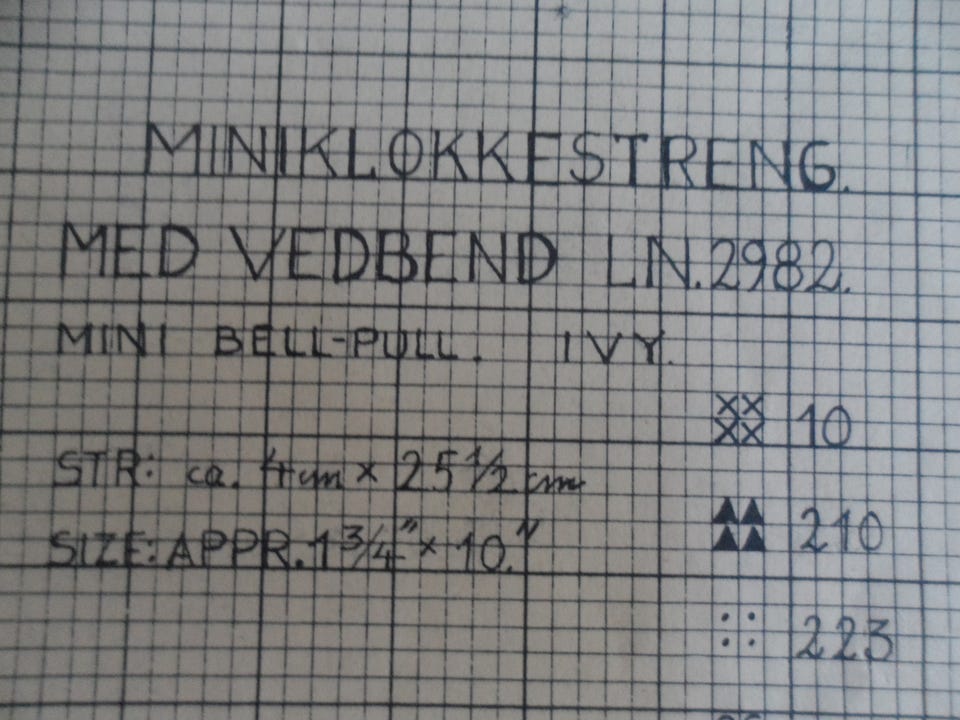 MINIKLOKKESTRENG.
MED VEDBEND LN.2982.
MINI BELL-PULL. IVY.
10
STR: ca. 4cm × 25 1/2 cm
SIZE: APPR. 1 3/4" × 10."
210
223